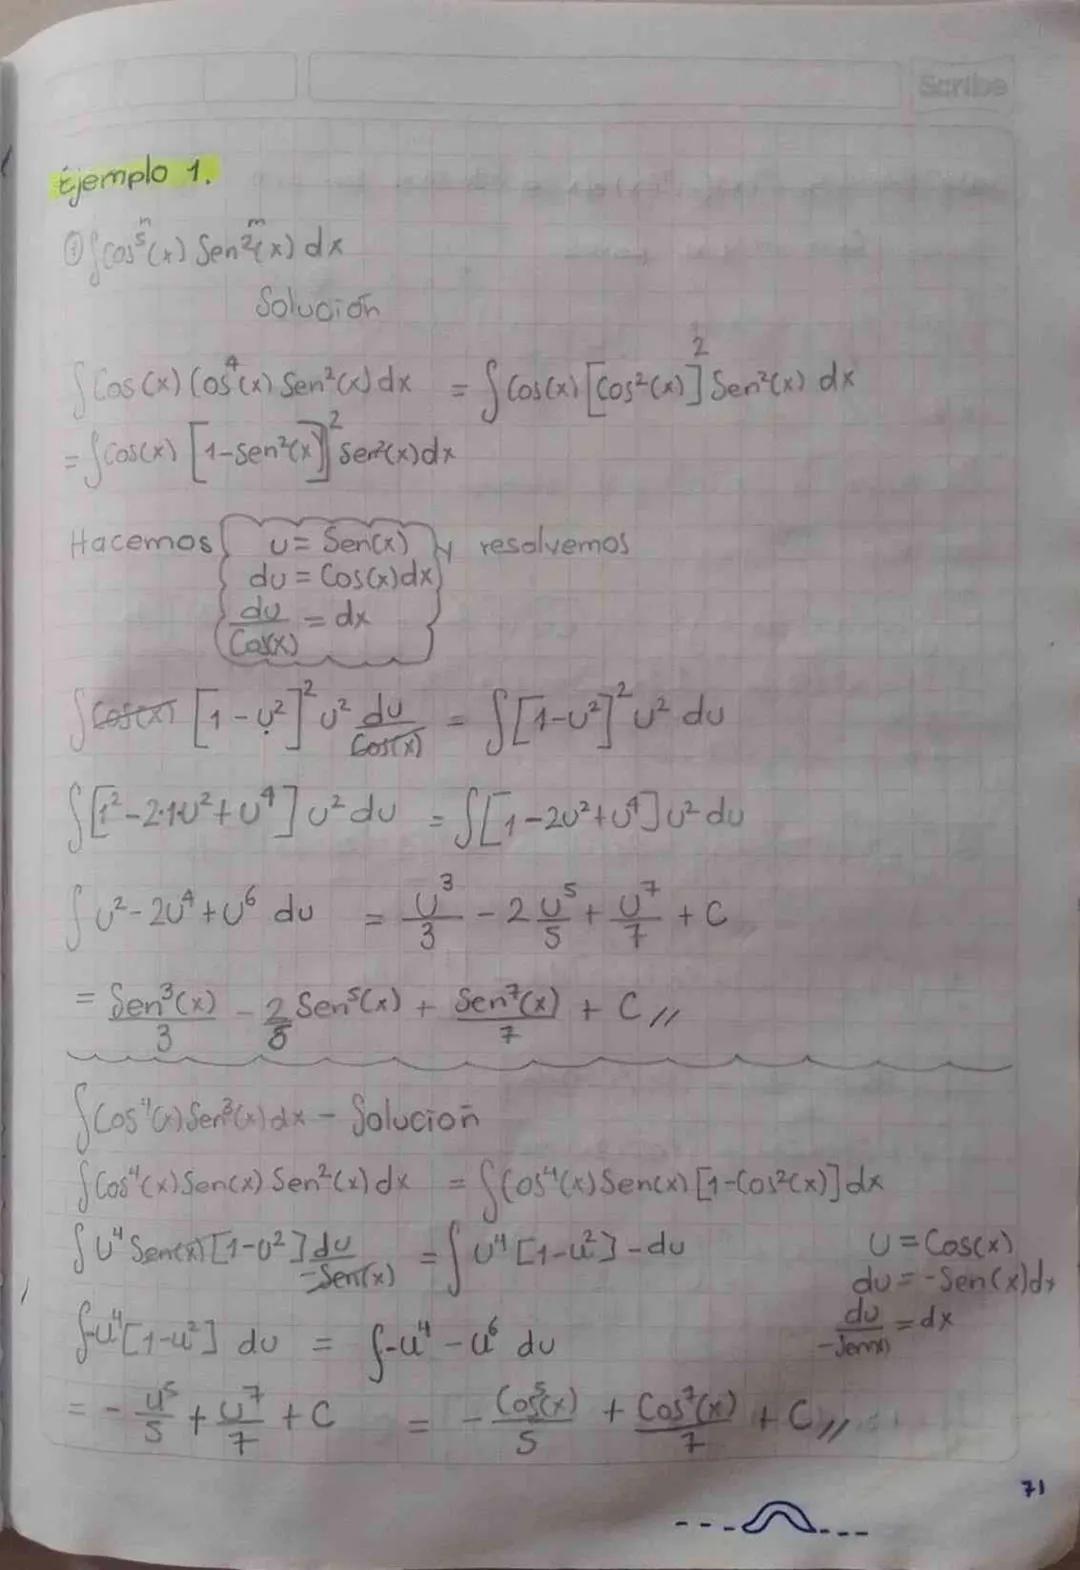 Scribe
Ejemplo 1.
n m
① ∫cos⁵(x) Sen²(x) dx
Solución
∫Cos(x) Cos⁴(x) Sen²(x) dx = ∫Cos(x) [Cos²(x)]² Sen²(x) dx
= ∫Cos(x) [1-Sen²(x)]² Sen²(x)dx
Hacemos u = Sen(x) y resolvemos
du = Cos(x)dx
du/Cos(x) = dx
∫Cos(x) [1-u²]² u² du/Cos(x) = ∫[1-u²]² u² du
∫[1²-2·1u²+u⁴] u² du = ∫[1-2u²+u⁴]u² du
∫u²-2u⁴+u⁶ du = u³/3 - 2 u⁵/5 + u⁷/7 + C
= Sen³(x)/3 - 2/5 Sen⁵(x) + Sen⁷(x)/7 + C //
∫Cos⁴(x) Sen³(x) dx - Solución
∫Cos⁴(x) Sen(x) Sen²(x) dx = ∫Cos⁴(x) Sen(x) [1-Cos²(x)] dx
∫u⁴ Sen(x) [1-u²] du/-Sen(x) = ∫u⁴ [1-u²] -du
u = Cos(x)
du = -Sen(x)dx
du/-Sen(x) = dx
∫-u⁴[1-u²] du = ∫-u⁴-u⁶ du
= - u⁵/5 + u⁷/7 + C = - Cos⁵(x)/5 + Cos⁷(x)/7 + C //
71